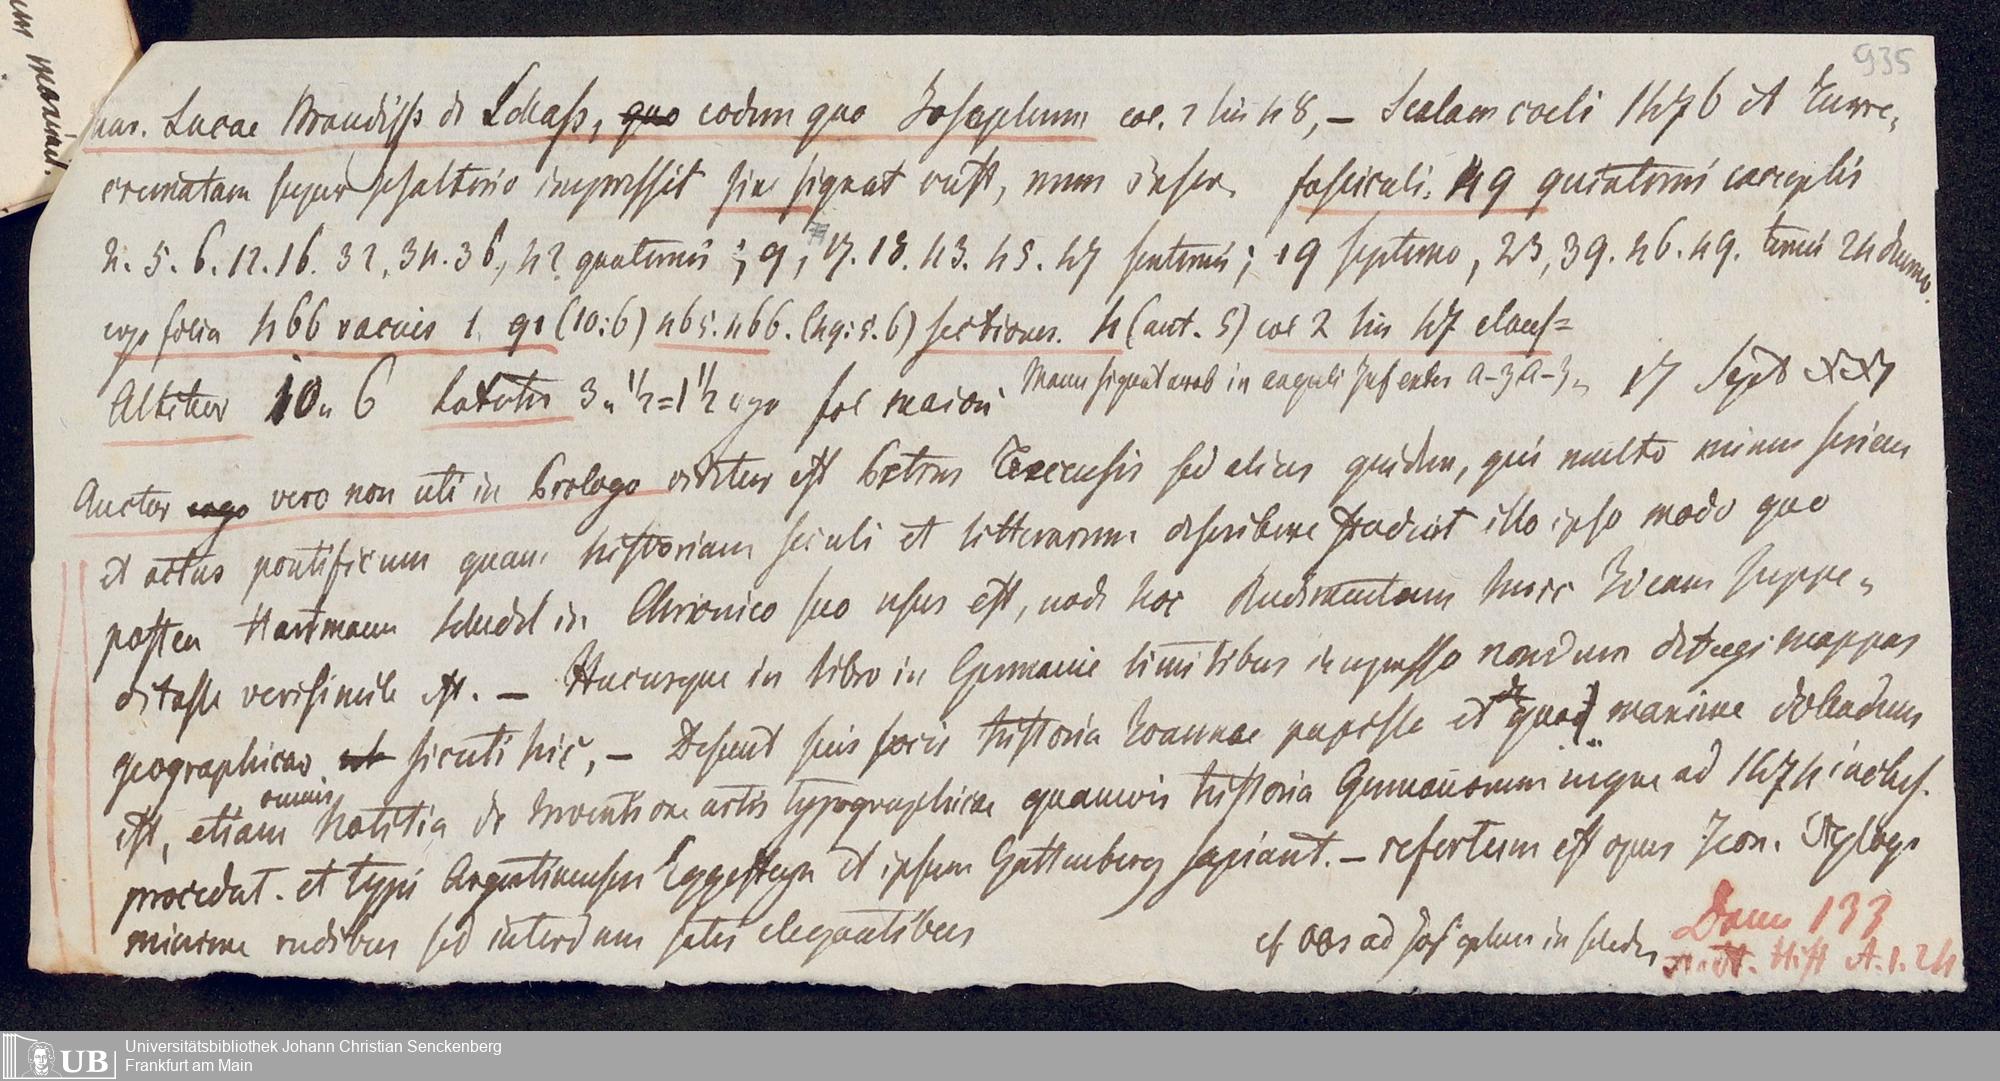 935
Lucae Brandiss de Schass, quo eodem quo Josephum col. 2 lin 48, — Scalam coeli 1476 et Turre„
crematam super psalterio impressit sine signat cust, num inser. fasciculi. 49 quinterni exceptis
4. 5. 6. 12. 16. 32, 34. 36, 42 quaterni; 9, 17. 18. 43. 45. 47 senterni; 19 septerno, 23, 39. 46. 49. terni 24 duerno.
ergo folia 466 vacuis 1. 91 (10:6) 465. 466. (49:5.6) sectiones. 4 (aut. 5) col 2 lin 47 clauf=
Altitur 10„ 6 Latitu 3„ 1/2 = 1 1/2 ergo fol maiori Manu signat in anguli inf a-z a-z„ 17 Sept
Auctor ergo vero non uti in Prologo dicitur est Petrus Trecensis sed alius quidem, qui multo minus seriem
et actus pontificum quam historiam seculi et litterarum describere studuit illo ipso modo quo
postea Hartmann Schedel in Chronico suo usus est, unde hoc Rudimentum hunc ideam suppe„
ditasse verisimile est. — Hucusque in libro in Germanie limitibus impresso nondum detegi mappas
geographicas ut sicuti hic, — Desunt suis locis historia Joannae papisse et quod maxime dolendum
est, etiam omnis notitia de inventione artis typographicae quamvis historia Germanorum usque ad 1474 inclus.
procedat. et typi Argentinensem Eggesteyn et ipsum Guttenberg sapiant. — refertum est opus Icon. Xylogr
minime rudibus sed interdum satis elegantibus
cf obs ad Josephum in schedis
Dom 133
Hist A. 1. 24
UB
Universitätsbibliothek Johann Christian Senckenberg
Frankfurt am Main